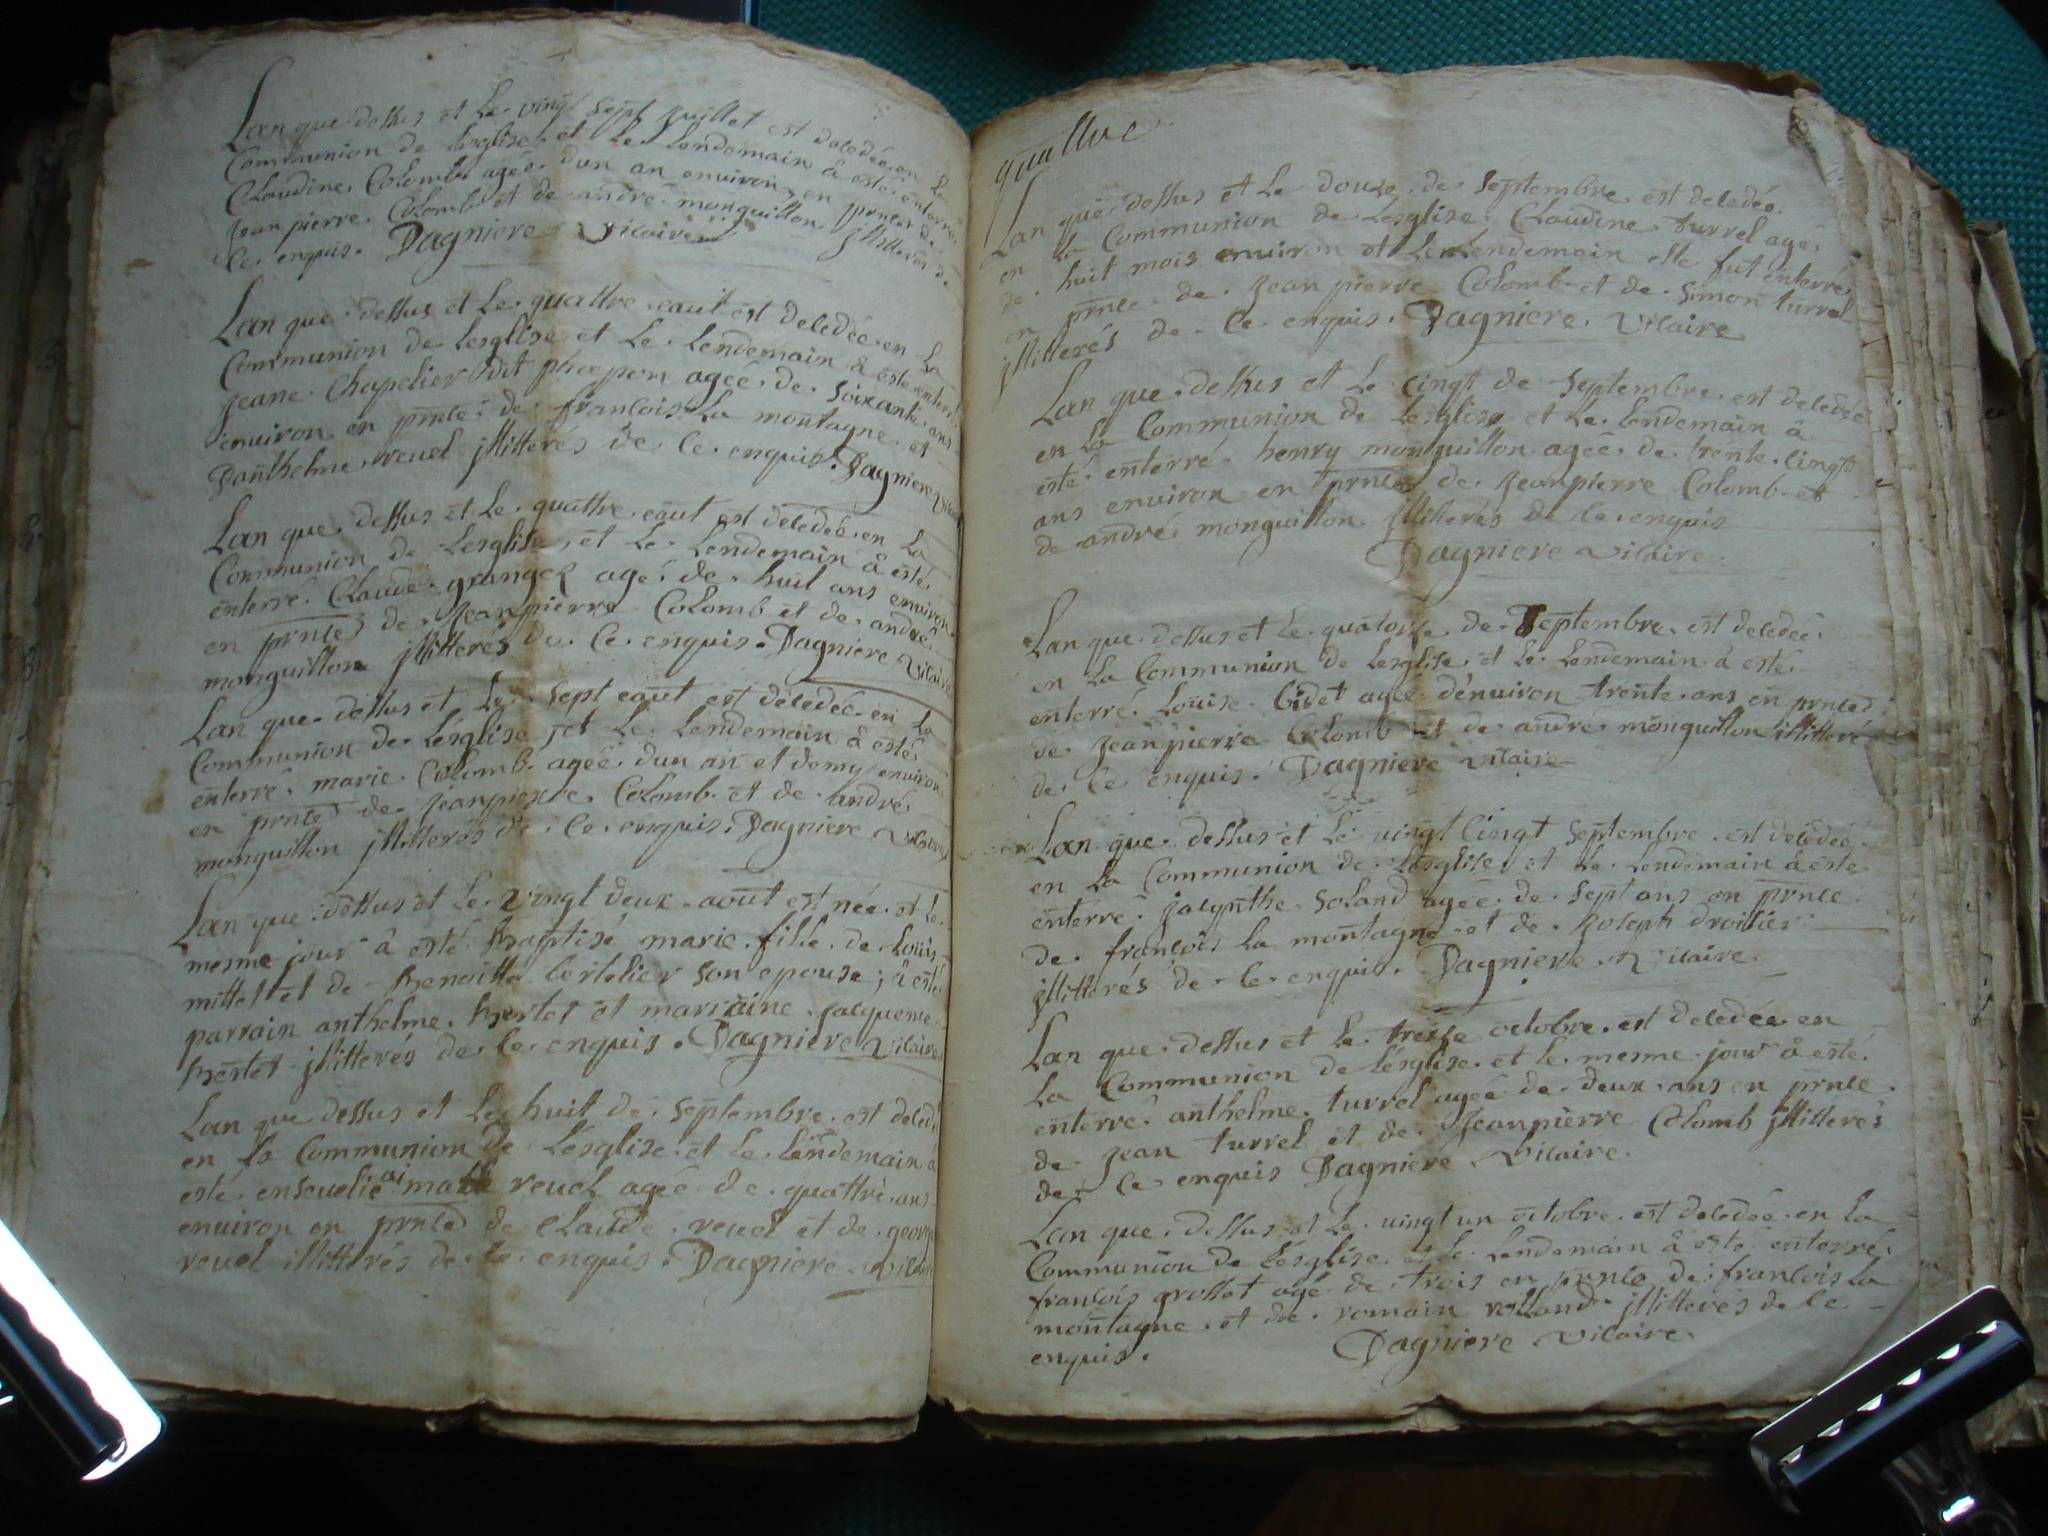 Lan que dessus et le vingt sept juillet est deledée en la
Communion de lesglise et le lendemain â esté enterré
Claudine Colomb agée dun an environ en prnce de
Jean pierre Colomb et de andré monguillon jllitterés de
ce enquis. Dagniere Vicaire
Lan que dessus et le quattre eaut est deledée en la
Communion de lesglise et le lendemain â esté enterré
jeane Chapelier dit agée de soixante ans
environ en prnce de françois la montagne et
danthelme revel jllitterés de ce enquis. Dagniere Vicaire
Lan que dessus et le quattre eaut est deledée en la
Communion de lesglise et le lendemain â esté
enterré Claude granger agé de huit ans environ
en prnces de Jeanpierre Colomb et de andré
monguillon jllitterés de ce enquis. Dagniere Vicaire
Lan que dessus et le sept eaut est deledée en la
Communion de lésglise et le lendemain â esté
enterré marie Colomb agée dun an et demy environ
en prnces de Jeanpierre Colomb et de andré
monguillon jllitterés de ce enquis. Dagniere Vicaire
Lan que dessus et le vingt deux aout est née et le
mesme jour â esté baptisé marie fille de Loüis
mittet et de benoitte bertelier son epouse; â esté
parrain anthelme bertet et marraine jacqueme
bertet jllitterés de ce enquis. Dagniere Vicaire
Lan que dessus et le huit de septembre est deledé
en la Communion de lésglise et le lendemain â
esté ensevelie revel agée de quattre ans
environ en prnces de Claude revel et de george
revel illitterés de ce enquis. Dagniere Vicaire
quattre
Lan que dessus et le douze de septembre est deledée
en la Communion de lesglise Claudine turrel agé
de huit mois environ et le lendemain elle fut enterré
en prnce de Jean pierre Colomb et de simon turrel
jllitterés de ce enquis. Dagniere Vicaire
Lan que dessus et le cingt de septembre est deledée
en la Communion de lesglise et le lendemain â
esté enterré henry monguillon agée de trente cingt
ans environ en prnces de Jeanpierre Colomb et
de andré monguillon jllitterés de ce enquis
Dagniere Vicaire
Lan que dessus et le quatorse de septembre est deledée
en la Communion de lesglise et le lendemain â esté
enterré Loüise agée dénviron trente ans en prnces
de Jeanpierre Colomb et de andre monguillon illitteré
de ce enquis. Dagniere Vicaire
Lan que dessus et le vingt cingt septembre est deledée
en la Communion de lesglise et le lendemain â esté
enterré jacynthe soland agée de sept ans en prnce
de françois la montagne et de Joseph droillier
jllitterés de ce enquis. Dagniere Vicaire
Lan que dessus et le treise octobre est deledée en
la Communion de lésglise et le mesme jour â esté
enterré anthelme turrel agée de deux ans en prnce
de jean turrel et de Jeanpierre Colomb jllitterés
de ce enquis Dagniere Vicaire
Lan que dessus et le vingt un octobre est deledée en la
Communion de lésglise et le lendemain â esté enterré
françois grosset agé de trois en prnce de françois la
montagne et de romain rolland jllitterés de ce
enquis. Dagniere Vicaire